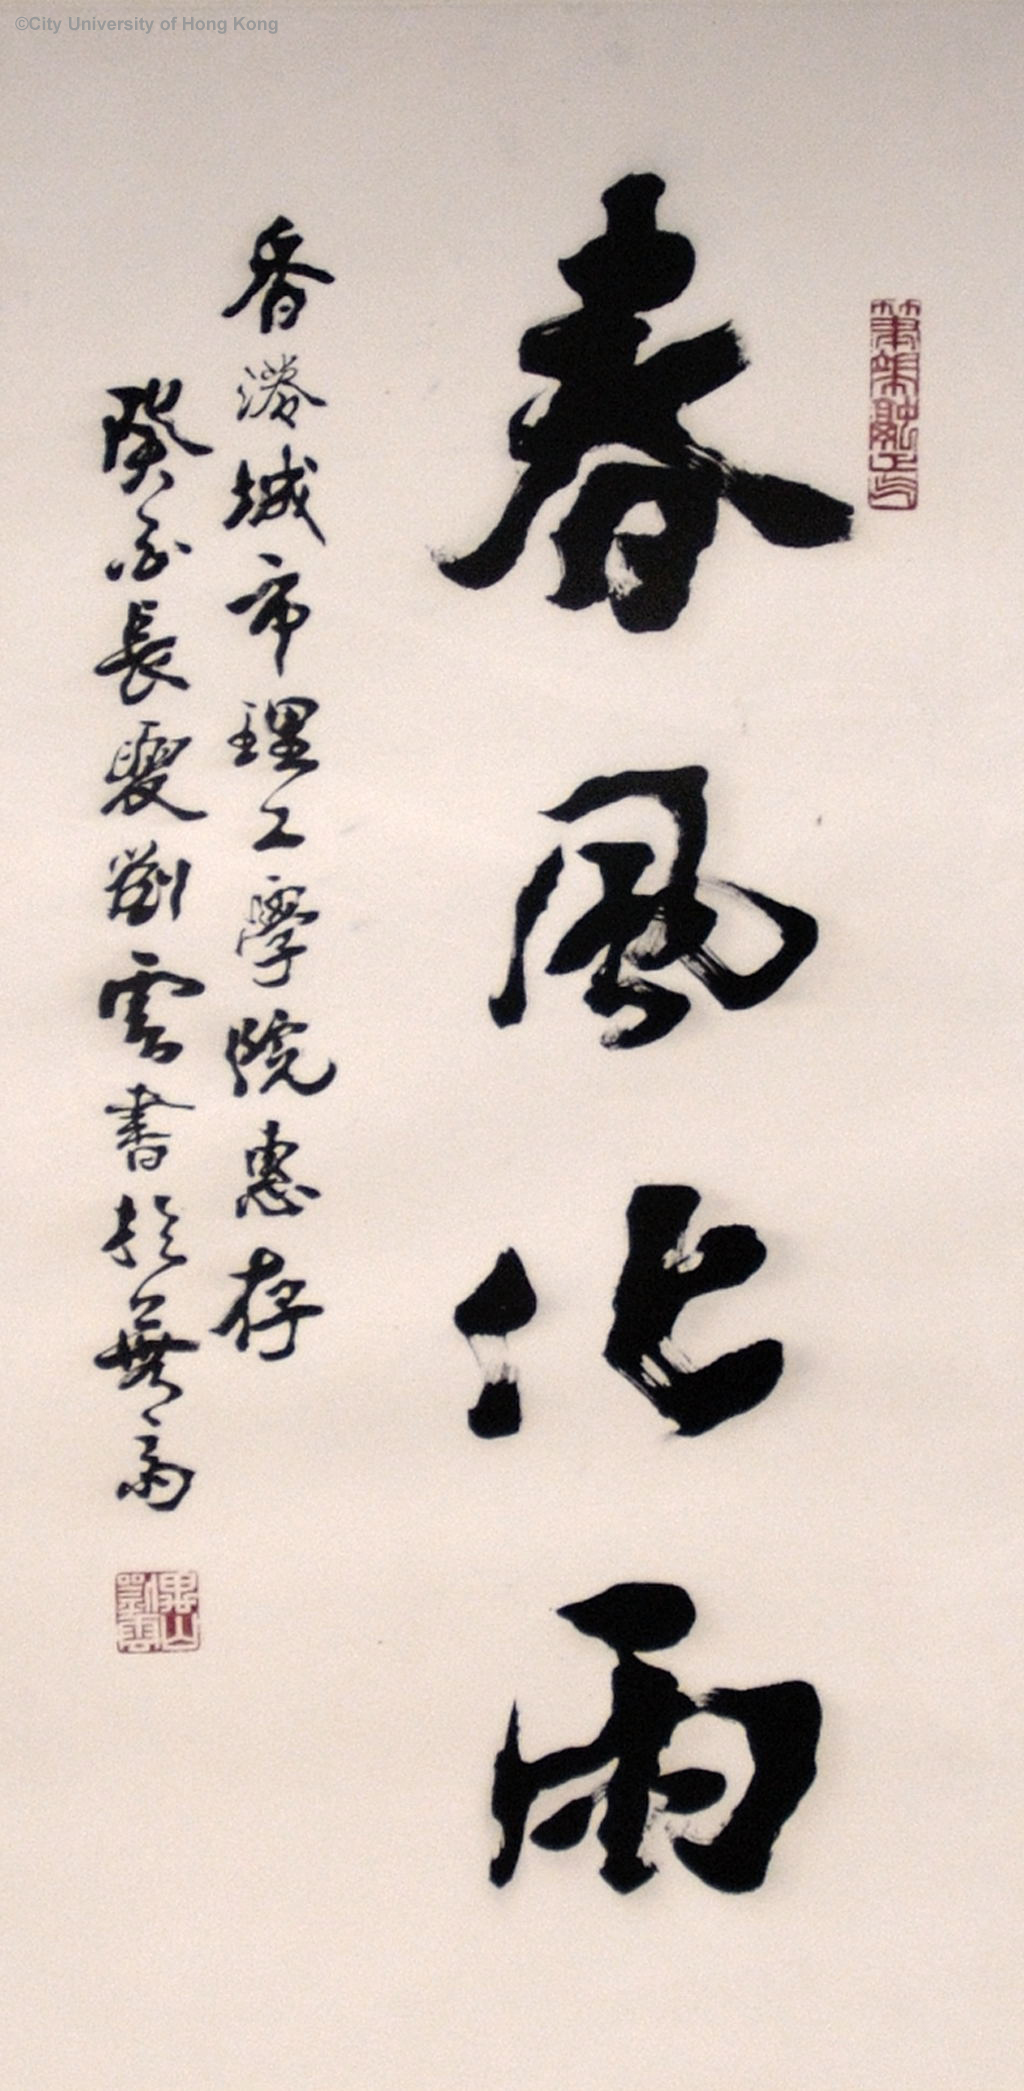 ©City University of Hong Kong
春風化雨
香港城市理工學院惠存
癸亥長夏劉雲書於蕪齋